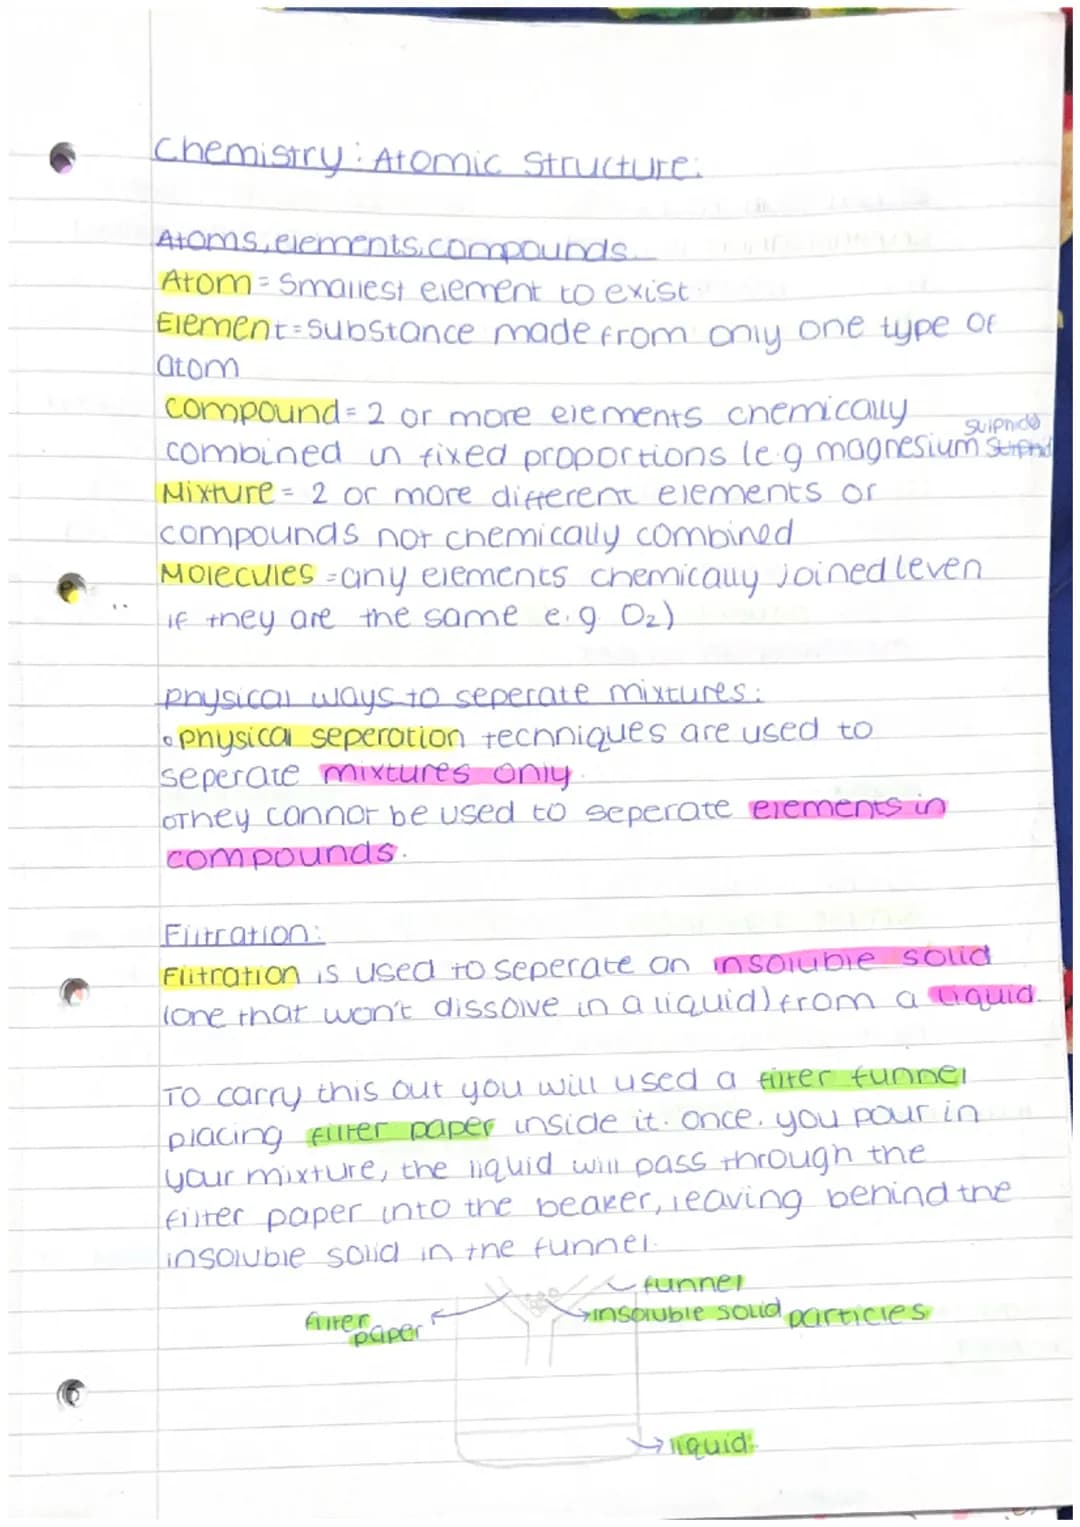 Chemistry: Atomic Structure:
Atoms, elements, compounds.
Atom = Smallest element to exist
Element = substance made from only one type of
atom
compound = 2 or more elements chemically
sulphide
combined in fixed proportions (e.g magnesium
Mixture = 2 or more different elements or
compounds not chemically combined
Molecules = any elements chemically joined (even
if they are the same e.g. O2)
physical ways to seperate mixtures:
physical seperation techniques are used to
seperate mixtures only.
They cannot be used to seperate elements in
compounds.
Filtration:
Filtration is used to seperate an insoluble solid
(one that won't dissolve in a liquid) from a liquid.
To carry this out you will used a filter funnel
placing filter paper inside it. once, you pour in
your mixture, the liquid will pass through the
filter paper into the beaker, leaving behind the
insoluble solid in the funnel.
funnel
insoluble solid particles
filter paper
liquid